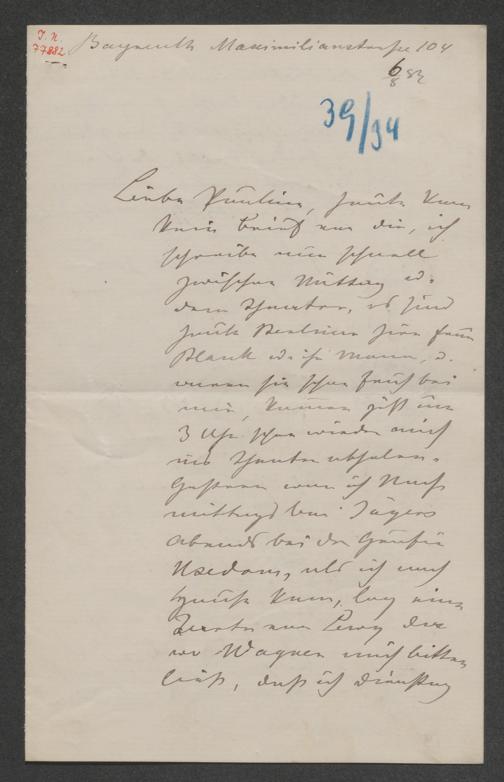 J. N.
77882
Bayreuth Maximilianstraße 104
6/8 82
39/94
Liebe Pauline, heute kam
kein Brief von dir, ich
schreibe nun schnell
zwischen Mittag u.
dem Theater, es sind
heute Berliner hier Frau
Blank u. ihr Mann, u.
waren sie schon früh bei
mir, kommen jetzt um
3 Uhr schon wieder mich
ins Theater abholen.
Gestern war ich Nach
mittags bei Jägers
Abends bei der Gräfin
Usedom, als ich nach
Hause kam, lag eine
Karte von Levy der
Wagner mich bitten
ließ, daß ich Dienstag